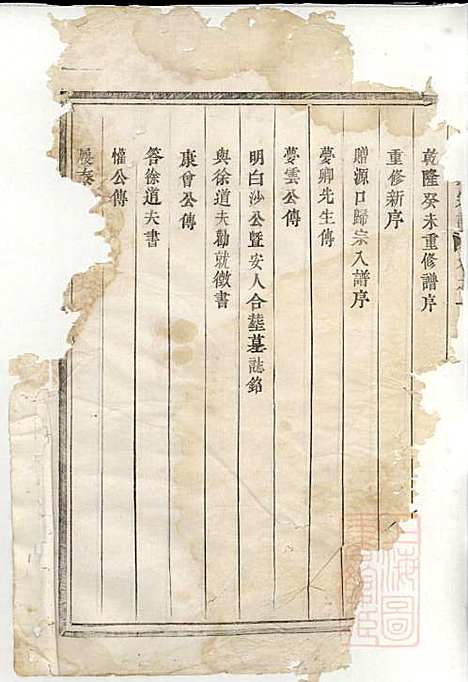 乾隆癸未重修譜序
重修新序
贈源口歸宗入譜序
夢卿先生傳
夢雲公傳
明白沙公暨安人合塟墓誌銘
與徐道夫勸就徵書
康曾公傳
答徐道夫書
權公傳
上海圖